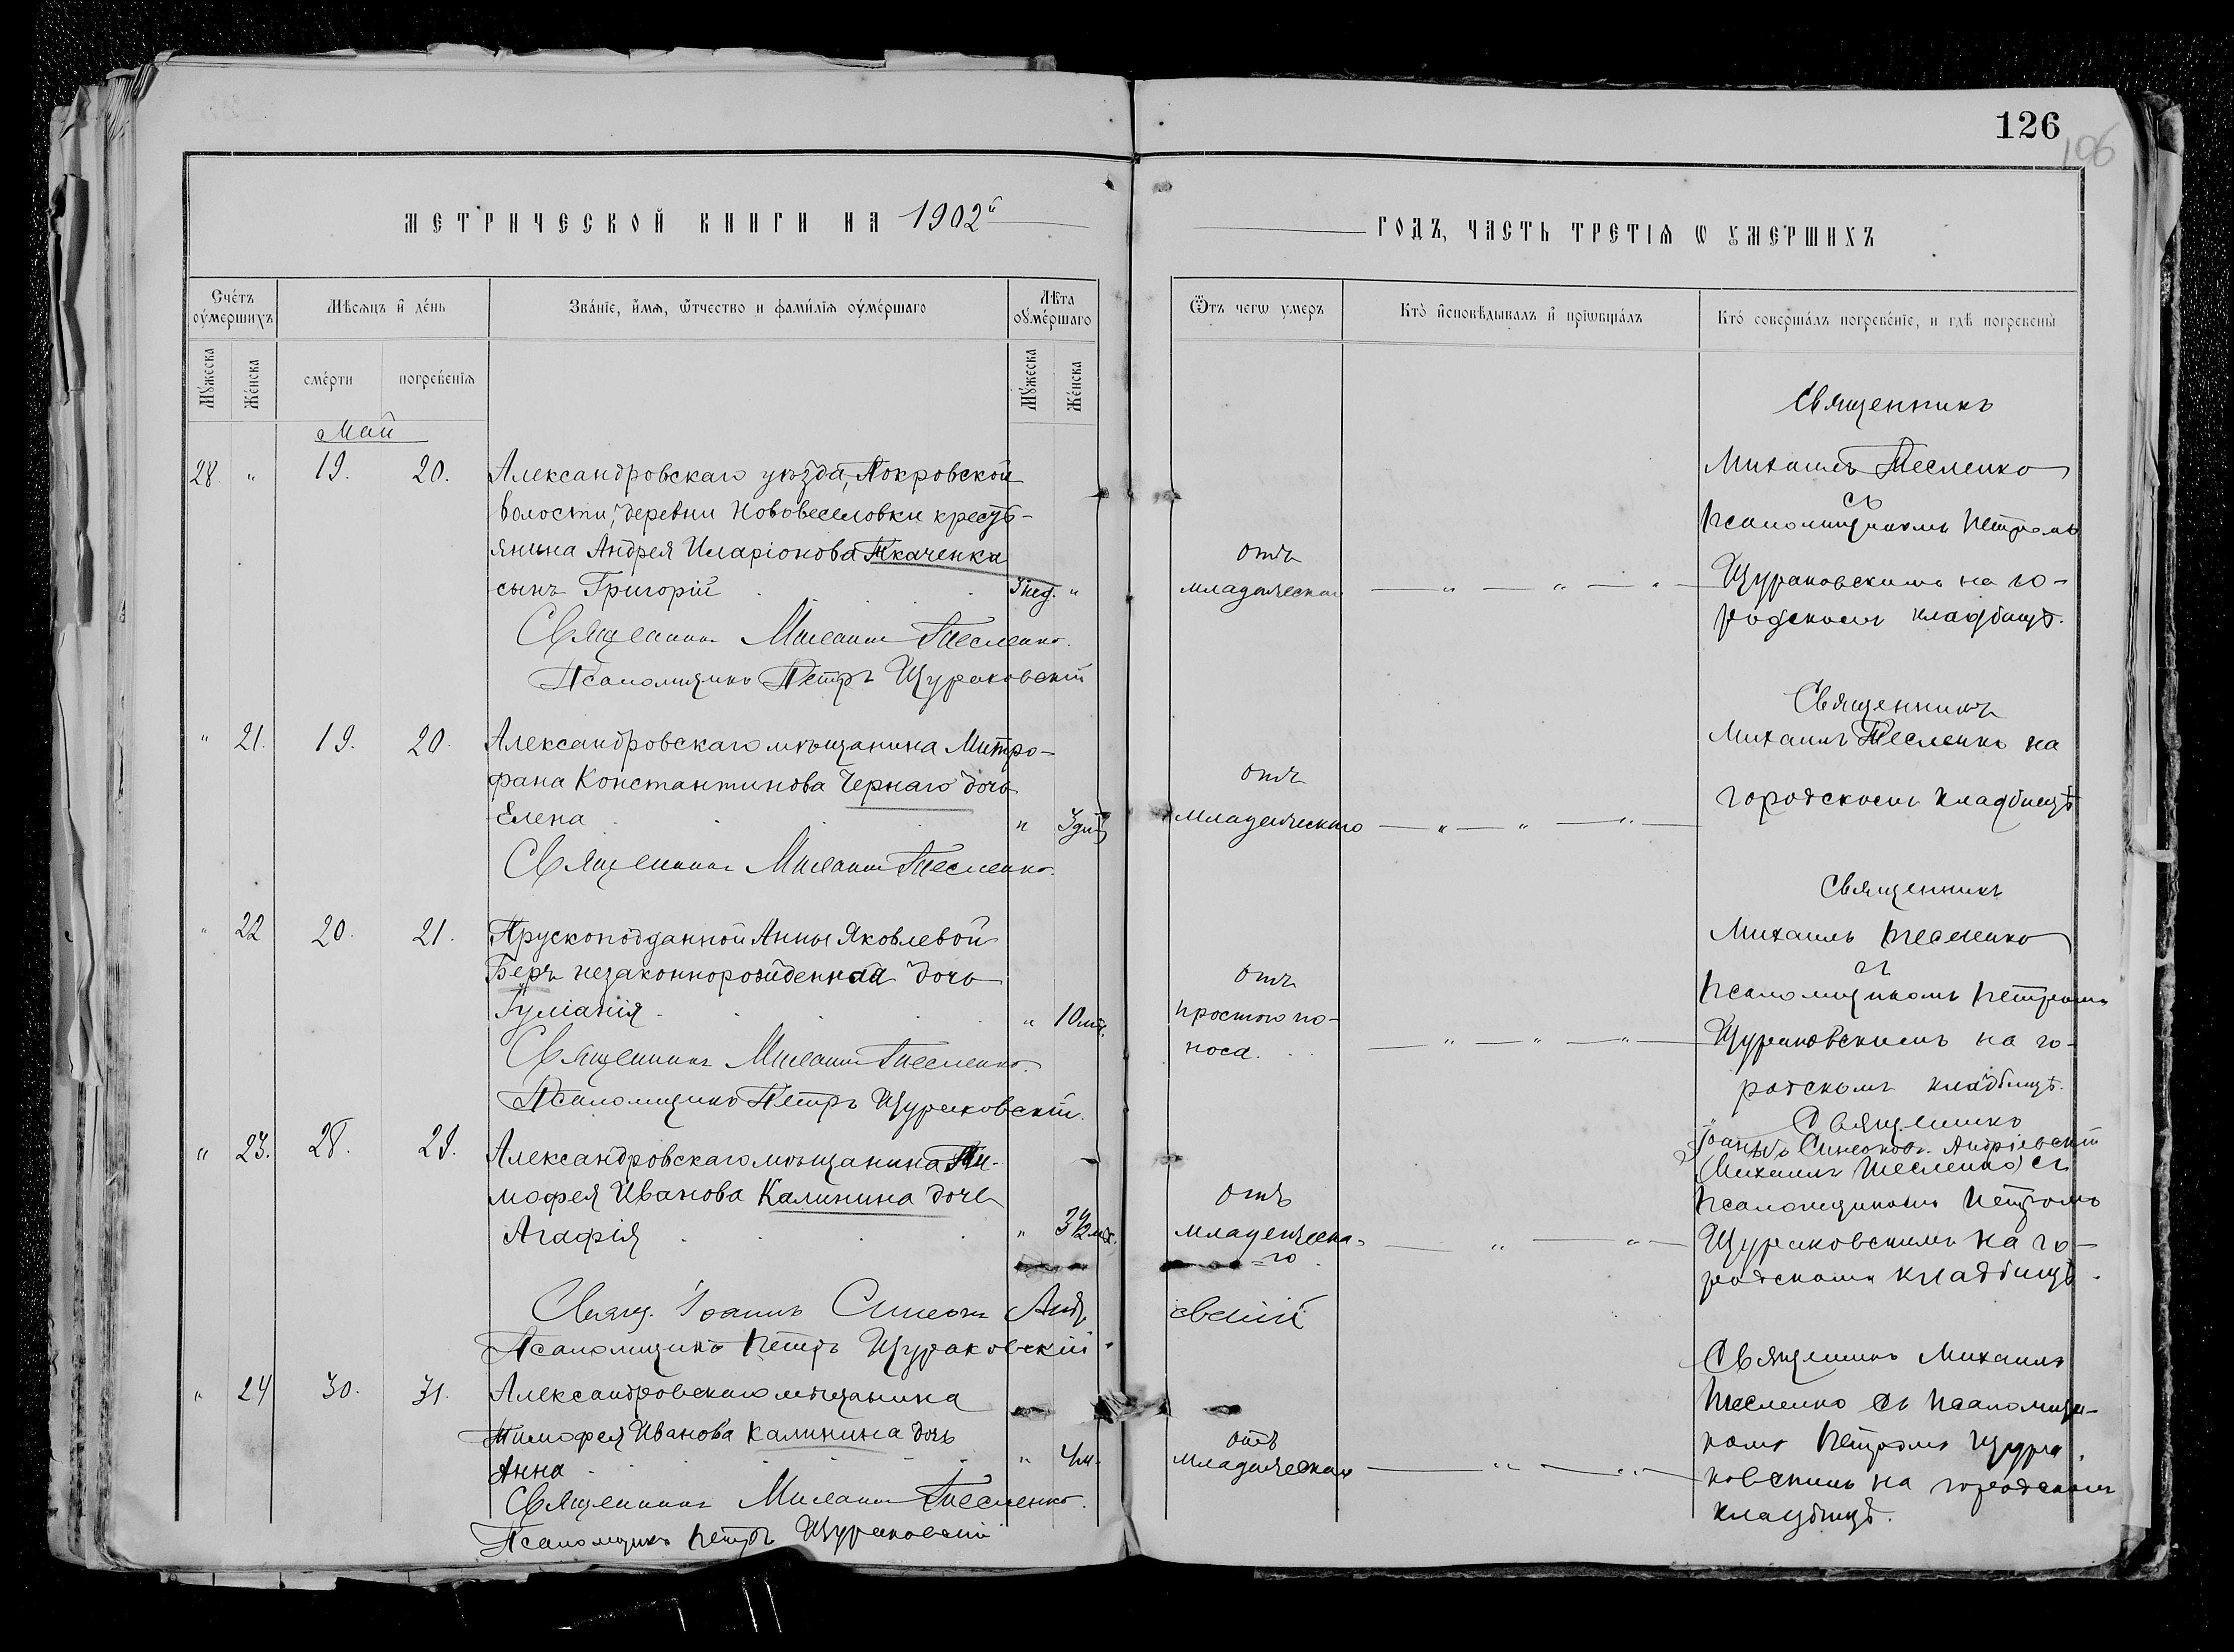 126
106
МЕТРИЧЕСКОЙ КНИГИ НА 1902й
ГОДЪ, ЧАСТЬ ТРЕТІѦ Ѡ УМЕРШИХЪ
Счéтъ оу҆мершихъ
Мѣсяцъ и҆ дéнь
Звáнїе, и҆́мя, ѻ҆́тчество и фамѝлїя оу҆мéршаго
Лѣ́та оу҆мéршаго
Ѿтъ чегѡ умеръ
Ктò и҆сповѣ́дывалъ и҆ прїѡбщáлъ
Ктó совершáлъ погребéнїе, и гдѣ̀ погребены̀
Мꙋ́жеска
Жéнска
смéрти
погребéнїя
Мꙋ́жеска
Жéнска
Май
28. " 19. 20.
Александровскаго уѣзда, Покровской
волости, деревни Нововеселовки кресть-
янина Андрея Иларіонова Ткаченка
сынъ Григорій
нед. "
Священникъ Михаилъ Тесленко.
Псаломщикъ Петръ Щураковскій
отъ
младенческой
Священникъ
Михаилъ Тесленко
съ
псаломщикомъ Петромъ
Щураковскимъ на го-
родскомъ кладбищѣ.
" 21. 19. 20.
Александровскаго мѣщанина Митро-
фана Константинова Чернаго дочь
Елена
" 3 дній
Священникъ Михаилъ Тесленко.
отъ
младенческаго
Священникъ
Михаилъ Тесленко на
городскомъ кладбищѣ
" 22 20. 21.
Прускоподданной Анны Яковлевой
Беръ незаконнорожденная дочь
Іуліанія
" 10 мѣ.
Священникъ Михаилъ Тесленко.
Псаломщикъ Петръ Щураковскій.
отъ
простого по-
носа.
Священникъ
Михаилъ Тесленко
съ
псаломщикомъ Петромъ
Щураковскимъ на го-
родскомъ кладбищѣ.
" 23. 28. 29.
Александровскаго мѣщанина Ти-
мофея Иванова Калинина дочь
Агафія
" 3½ мѣ.
Свящ. Іоаннъ Симеонъ Анд
евскій
Псаломщикъ Петръ Щураковскій
отъ
младенческа-
=го
Священникъ
Іоаннъ Симеоновъ Андріевскій
(Михаилъ Тесленко) съ
псаломщикомъ Петромъ
Щураковскимъ на го-
родскомъ кладбищѣ.
" 24 30. 31.
Александровскаго мѣщанина
Тимофея Иванова Калинина дочь
Анна
" 4 м.
Священникъ Михаилъ Тесленко.
Псаломщикъ Петръ Щураковскій
отъ
младенческой
Священникъ Михаилъ
Тесленко съ псаломщи-
комъ Петромъ Щура
ковскимъ на городскомъ
кладбищѣ.